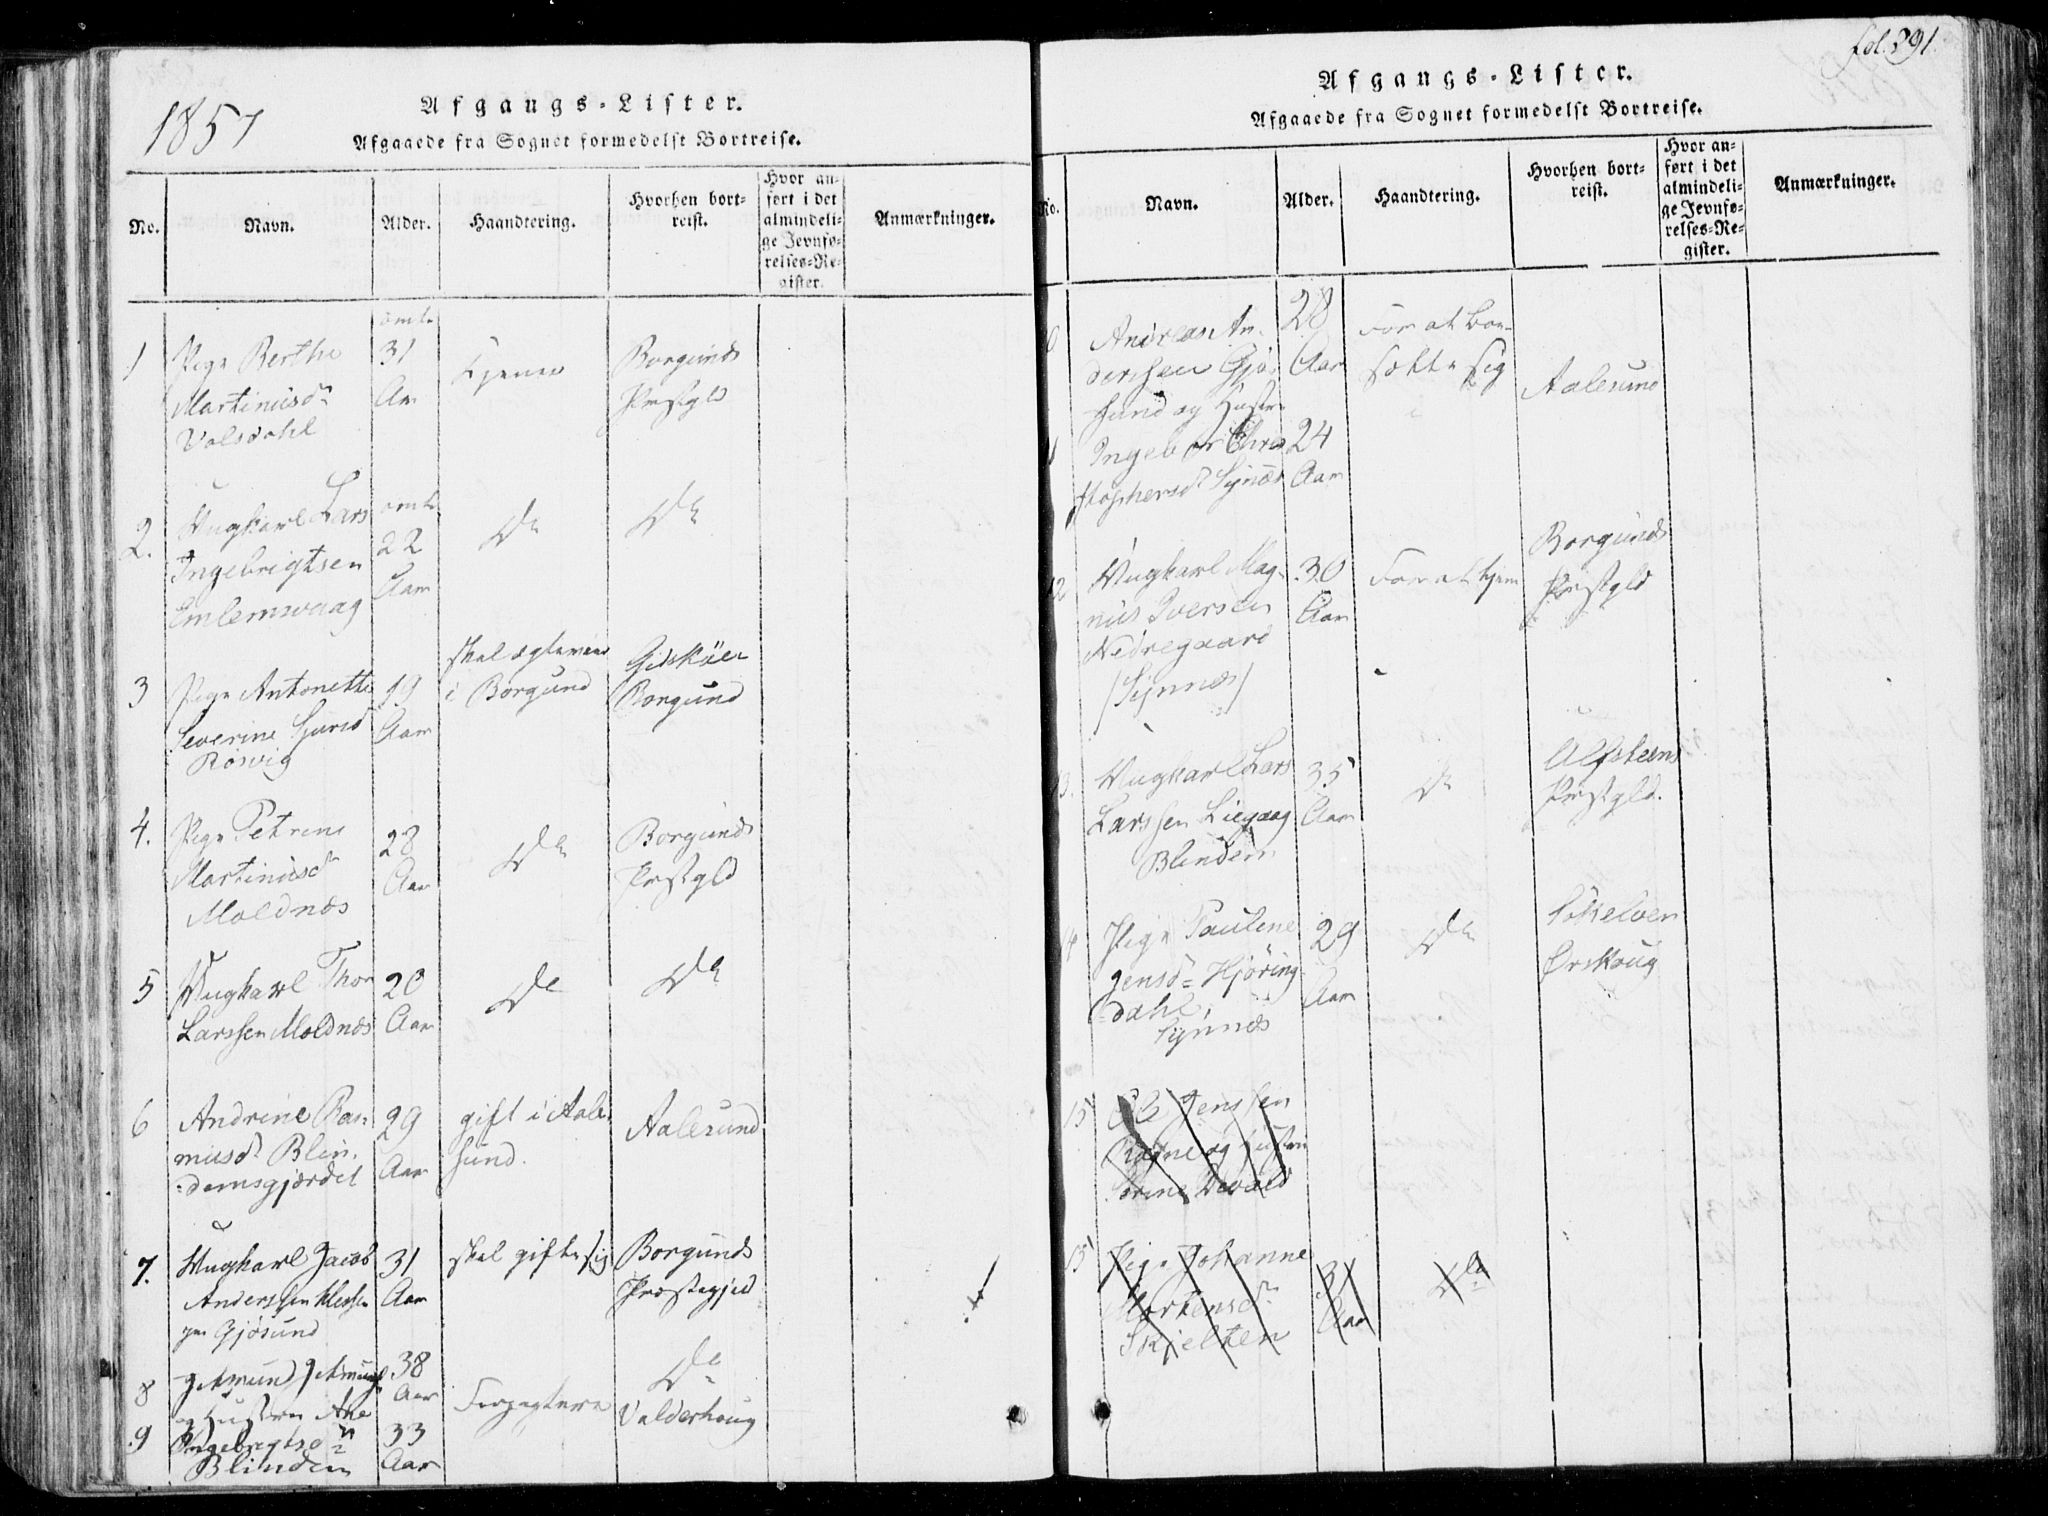 1857
Afgangs-Lister.
Afgaaede fra Sognet formedelst Bortreise.
No.
Navn.
Alder.
Haandtering.
Hvorhen bort-
reist.
Hvor an-
ført i det
almindeli-
ge Jevnfø-
relses-Re-
gister.
Anmærkninger.
1
Pige Berthe
Martinusdr
Valsdahl
omtr
31
Aar
tjener
Borgunds
Præstgld
2.
Ungkarl Lars
Ingebrigtsen
Emlemsvaag
omtr
22
Aar
Do
Do
3
Pige Antonette
Severine Sjursd
Rösvig
19
Aar
skal ægtevies
i Borgund
Gidsköen
Borgund
4.
Pige Petrine
Martinusdr
Moldnæs
28
Aar
Do
Borgunds
Præstgld
5
Ungkarl Thor
Larssen Moldnæs
20
Aar
Do
Do
6
Andrine Ras-
musdr Blin-
demsgjærdet
29
Aar
gift i Aale-
sund.
Aalesund
7.
Ungkarl Jacob
Anderssen
Gjøsund
31
Aar
skal gifte sig
Borgunds
Præstegjed
8
Amund
og Hustru Ane
38
Aar
Forpagtere
Do
Valderhoug
9
Ingebrigtsdr
Blindem
33
Aar
fol. 291.
Afgangs-Lister.
Afgaaede fra Sognet formedelst Bortreise.
No.
Navn.
Alder.
Haandtering.
Hvorhen bort-
reist.
Hvor an-
ført i det
almindeli-
ge Jevnfø-
relses-Re-
gister.
Anmærkninger.
0
Andreas An-
derssen Gjø-
sund og Hustru
28
Aar
For at bo-
sætte sig
Aalesund
Ingebor Chri
stophersdr Synæs
24
Aar
12
Ungkarl Mag-
nus Iversen
Nedregaard
(Synnæs)
30
Aar
For at tjene
Borgunds
Præstgld
13.
Ungkarl Lars
Larssen Liegaag
Blindem
35
Aar
Do
Ulfsteens
Præstgld.
14
Pige Pauline
Jensd= Hjøring
dahl,
Synnæs
29
Aar
Do
Søkelven
Ørskoug
15
Ole Jenssen
Røgne og Hustru
Sorine Devold
15
Pige Johanne
Mortensdr
Skjelten
31
Aar
Do